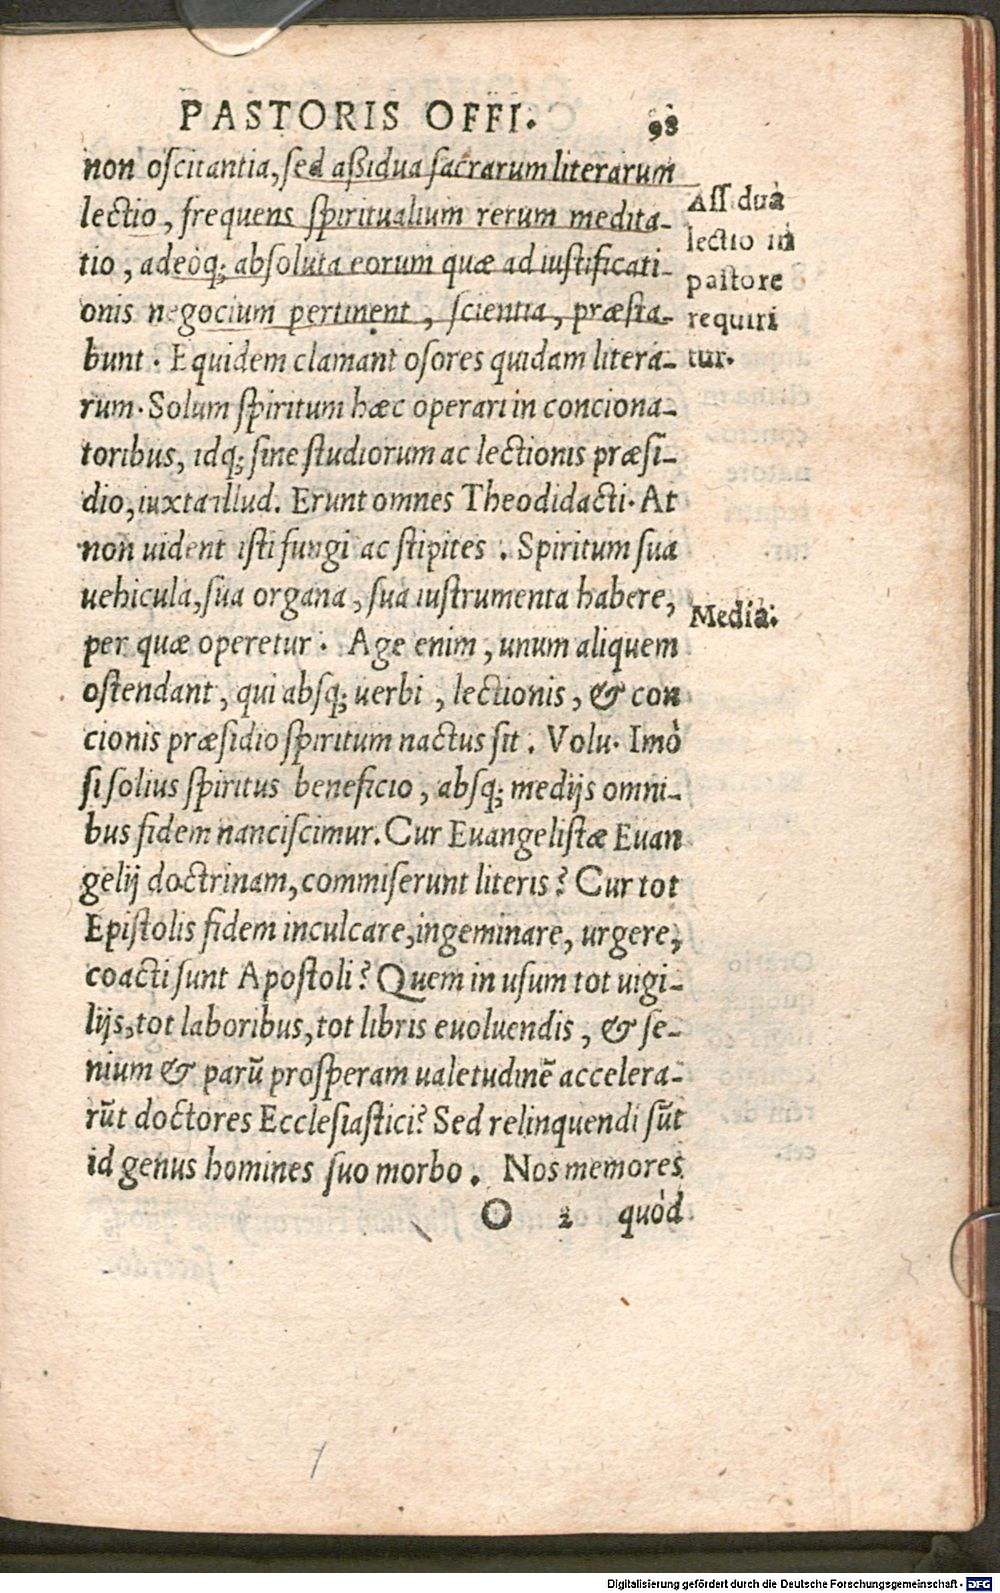 PASTORIS OFFI. 98
non oſcitantia, ſed aßidua ſacrarum literarum
lectio, frequens ſpiritualium rerum medita-
tio, adeoq; absoluta eorum quæ ad iuſtificati-
onis negocium pertinent, ſcientia, præſta-
bunt. Equidem clamant oſores quidam litera-
rum. Solum ſpiritum hæc operari in conciona-
toribus, idq; ſine ſtudiorum ac lectionis præſi-
dio, iuxta illud. Erunt omnes Theodidacti. At
non uident iſti fungi ac ſtipites. Spiritum ſua
uehicula, ſua organa, ſua iuſtrumenta habere,
per quæ operetur. Age enim, unum aliquem
oſtendant, qui abſq; uerbi, lectionis, & con
cionis præſidio ſpiritum nactus ſit. Volu. Imò
ſi ſolius ſpiritus beneficio, abſq; medijs omni-
bus fidem nanciſcimur. Cur Euangeliſtæ Euan
gelij doctrinam, commiſerunt literis? Cur tot
Epiſtolis fidem inculcare, ingeminare, urgere,
coacti ſunt Apoſtoli? Quem in uſum tot uigi-
lijs, tot laboribus, tot libris euoluendis, & ſe-
nium & parũ proſperam ualetudinẽ accelera-
rũt doctores Eccleſiaſtici? Sed relinquendi ſũt
id genus homines ſuo morbo. Nos memores
O 2 quòd
Aſſidua
lectio in
paſtore
requiri
tur.
Media.
Digitalisierung gefördert durch die Deutsche Forschungsgemeinschaft - DFG